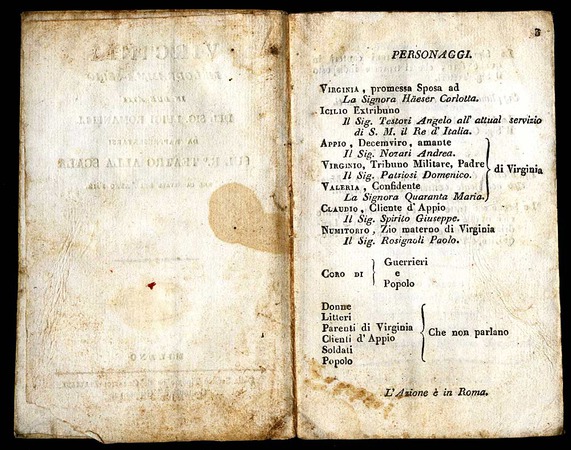 3
PERSONAGGI.
VIRGINIA, promessa Sposa ad
La Signora Häeser Carlotta.
ICILIO Extribuno
Il Sig. Testori Angelo all' attual servizio
di S. M. il Re d'Italia.
APPIO, Decemviro, amante
Il Sig. Nozari Andrea.
VIRGINIO, Tribuno Militare, Padre
Il Sig. Patriosi Domenico.
di Virginia
VALERIA, Confidente
La Signora Quaranta Maria.
CLAUDIO, Cliente d'Appio
Il Sig. Spirito Giuseppe.
NUMITORIO, Zio materno di Virginia
Il Sig. Rosignoli Paolo.
CORO DI
Guerrieri
e
Popolo
Donne
Litteri
Parenti di Virginia
Clienti d'Appio
Soldati
Popolo
Che non parlano
L'Azione è in Roma.
VIRGINIA
MILANO